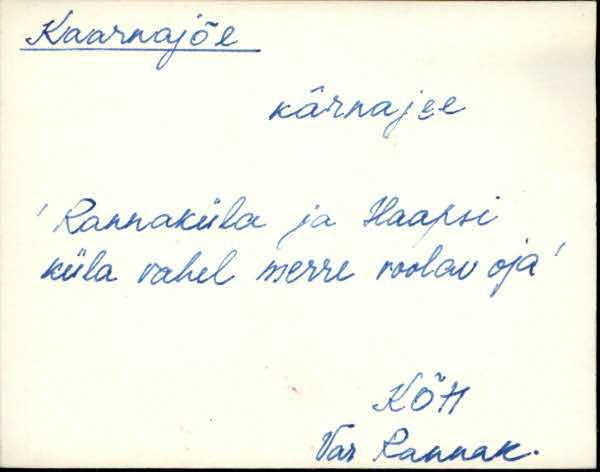 Kaarnajõe
kârnajee
'Rannaküla ja Haapsi
küla vahel merre voolav oja'
KÕH
Var Rannak.